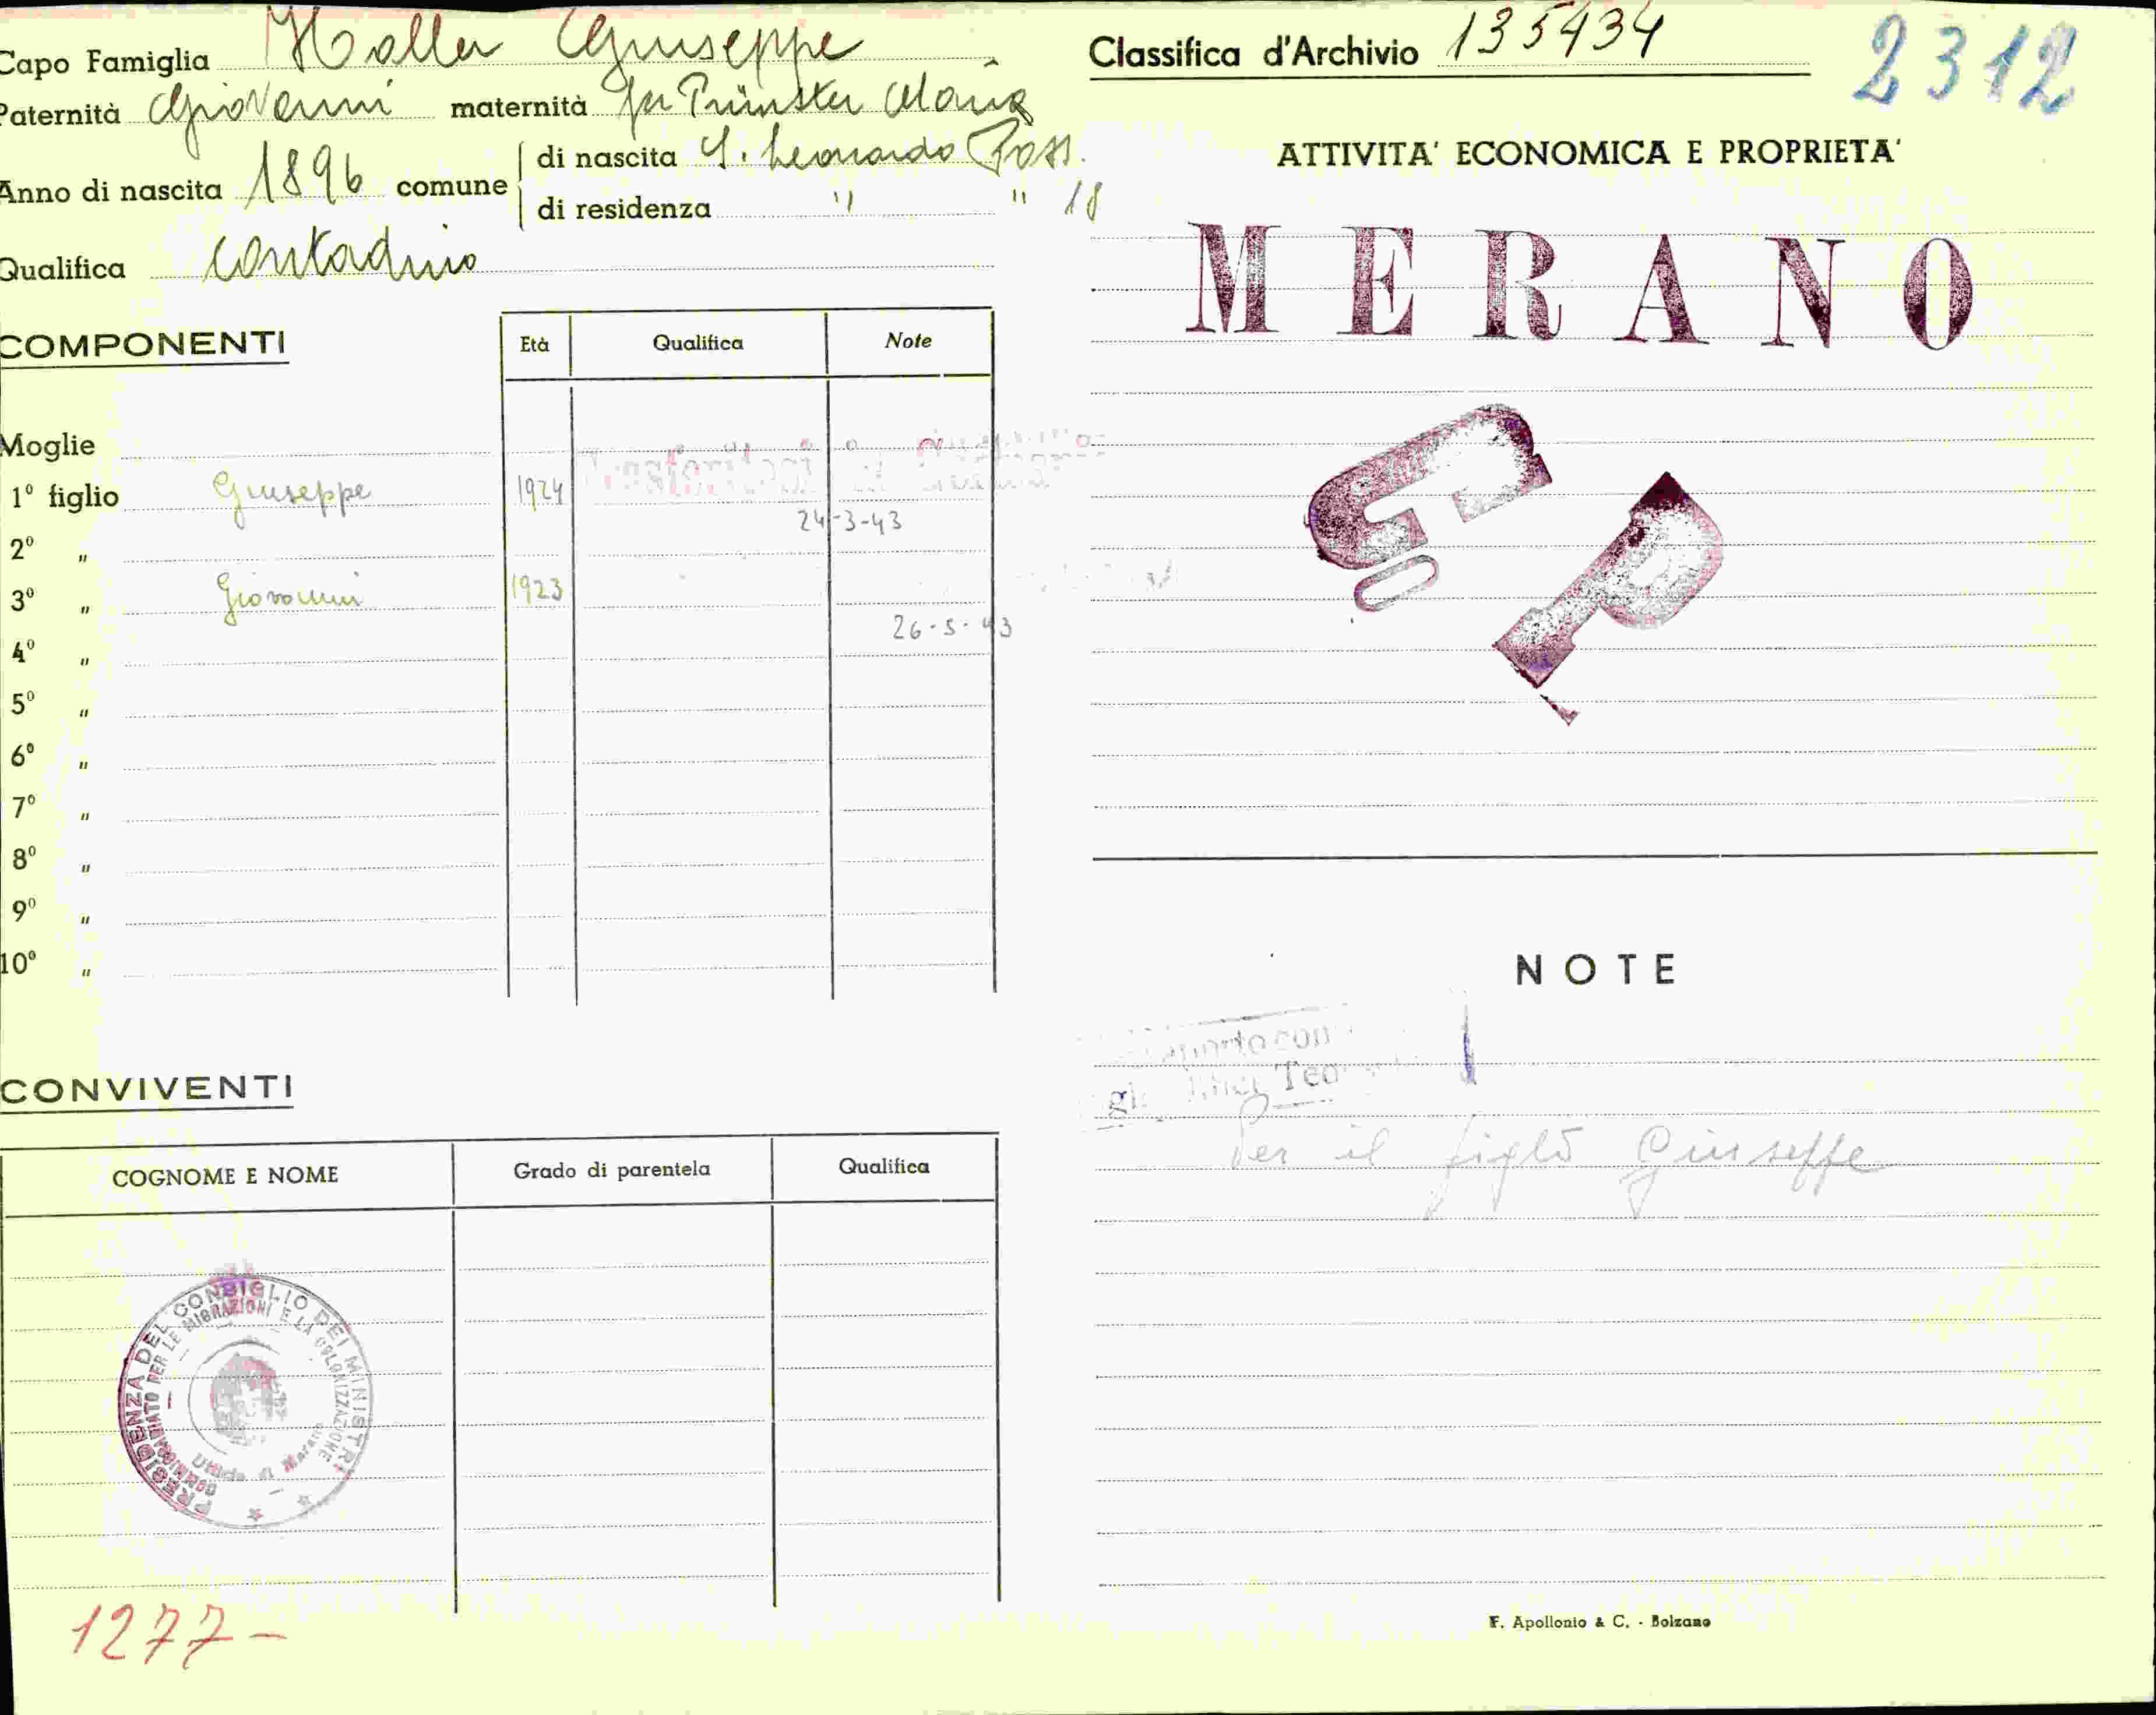 Capo Famiglia Haller Giuseppe
Paternità Giovanni maternità fu Prünster Maria
Anno di nascita 1896 comune di nascita S. Leonardo Pass.
di residenza " " 18
Qualifica contadino
COMPONENTI
Età Qualifica Note
Moglie
1º figlio Giuseppe 1924
24-3-43
2º "
3º " Giovanni 1923
26-5-43
4º "
5º "
6º "
7º "
8º "
9º "
10º "
CONVIVENTI
COGNOME E NOME Grado di parentela Qualifica
PRESIDENZA DEL CONSIGLIO DEI MINISTRI
COMMISSARIATO PER LE MIGRAZIONI E LA COLONIZZAZIONE
Ufficio di Merano
1277-
Classifica d'Archivio 135434
2312
ATTIVITA' ECONOMICA E PROPRIETA'
MERANO
G P
NOTE
Per il figlio Giuseppe
F. Apollonio & C. - Bolzano